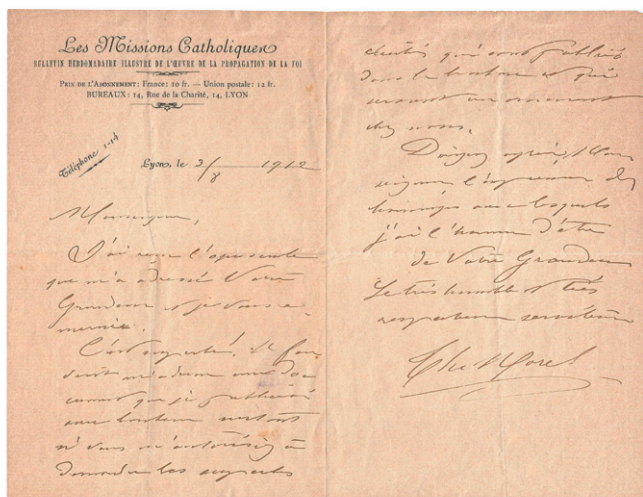 Les Missions Catholiques
BULLETIN HEBDOMADAIRE ILLUSTRÉ DE L'ŒUVRE DE LA PROPAGATION DE LA FOI
PRIX DE L'ABONNEMENT: France: 10 fr. — Union postale: 12 fr.
BUREAUX: 14, Rue de la Charité, 14, LYON
Téléphone 1-14
Lyon, le 3/8 1912
Monseigneur,
J'ai reçu l'opuscule
que m'a adressé Votre
Grandeur et je vous re-
mercie.
C'est
document que je publierai
surtout
si vous m'autorisez à
demander les
clichés qui sont publiés
dans la brochure et qui
chez vous.
Daignez agréer, Mon-
seigneur, l'expression des
hommages avec lesquels
j'ai l'honneur d'être
de Votre Grandeur
Le très humble et très
respectueux serviteur
Morel